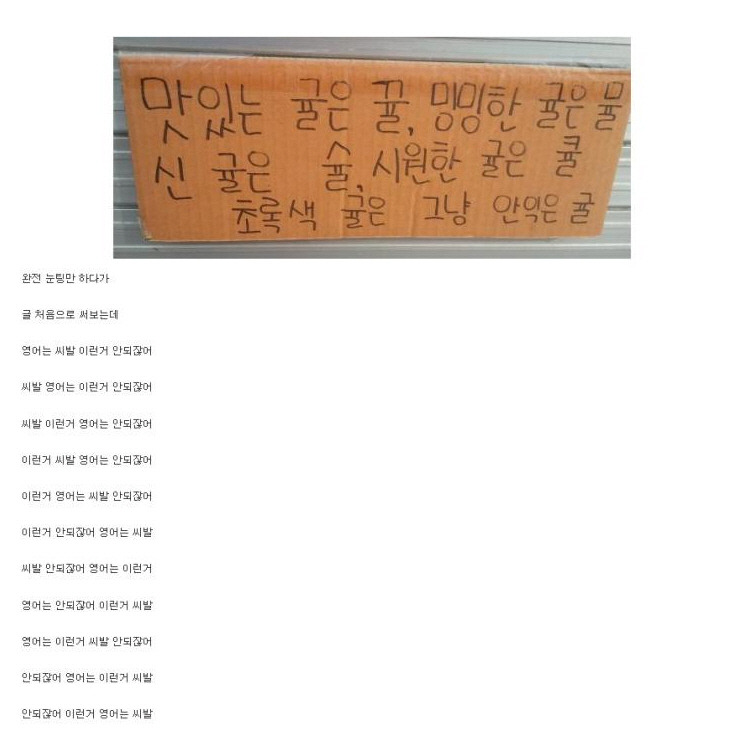 맛있는 귤은 뀰, 밍밍한 귤은 뮬
신 귤은 슐, 시원한 귤은 큘
초록색 귤은 그냥 안익은 귤
완전 눈팅만 하다가
글 처음으로 써보는데
영어는 씨발 이런거 안되잖어
씨발 영어는 이런거 안되잖어
씨발 이런거 영어는 안되잖어
이런거 씨발 영어는 안되잖어
이런거 영어는 씨발 안되잖어
이런거 안되잖어 영어는 씨발
씨발 안되잖어 영어는 이런거
영어는 안되잖어 이런거 씨발
영어는 이런거 씨발 안되잖어
안되잖어 영어는 이런거 씨발
안되잖어 이런거 영어는 씨발